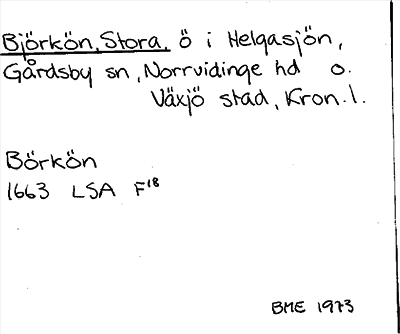 Björkön, Stora, ö i Helgasjön,
Gårdsby sn, Norrvidinge hd o.
Växjö stad, Kron. l.
Börkön
1663 LSA F18
BME 1973